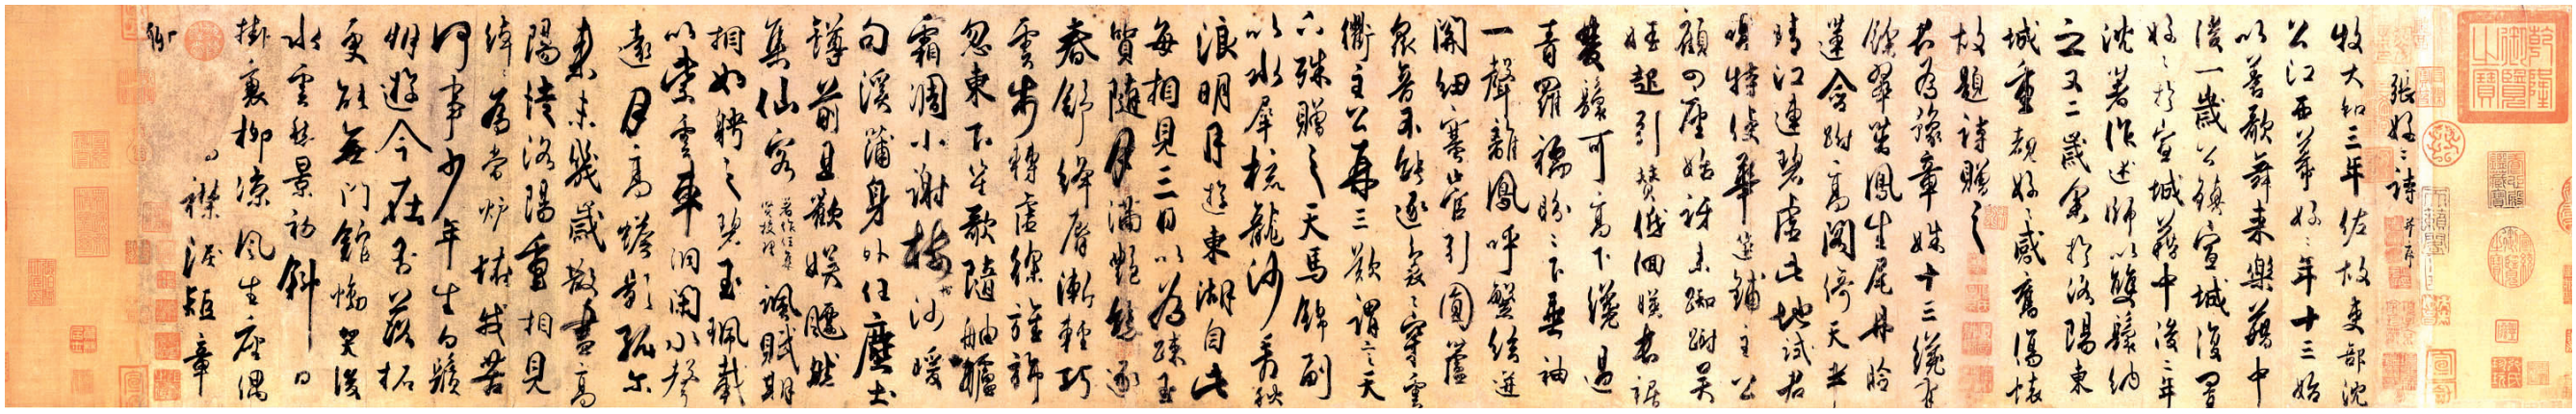 乾隆御覽之寶
張好〻詩 并序
牧大和三年佐故吏部沈
公江西幕好〻年十三始
以善歌舞来樂籍中
後一歲公鎮宣城復置
好〻於宣城籍中後二年
沈著作述師以雙鬟納
之又二歲余於洛陽東
城重覩好〻感舊傷懷
故題詩贈之
君為豫章姝十三纔有
餘翠茁鳳生尾丹臉
蓮含跗高閣倚天半
晴江連碧虛此地試君
唱特使華筵鋪主公
顧四座始訝来踟躕吳
娃起引贊低佪暎長裾
雙鬟可高下纔過
青羅襦盼〻下垂袖
一聲離鳳呼繁絃迸
關紐塞管引圓蘆
衆音不能逐裊〻穿雲
衢主公再三歎謂言天
下殊贈之天馬錦副
以水犀梳龍沙看秋
浪明月遊東湖自此
每相見三日以為踈玉
質隨月滿艷態逐
春舒絳脣漸輕巧
雲步轉虛徐旌旆
忽東下笙歌隨舳艫
霜凋小謝樹沙暖
句溪蒲身外任塵土
罇前且歡娛飄然
集仙客 著作任集賢校理 諷賦期
相如聘之碧玉珮載
以紫雲車洞閉水聲
遠月高蟾影孤尔
来未幾歲散盡高
陽徒洛陽重相見
綽〻為當壚怪我苦
何事少年生白鬚
朋遊今在否落拓
更能無門館慟哭後
水雲愁景初斜日
掛衰柳凉風生座隅
襟淚短章
聊